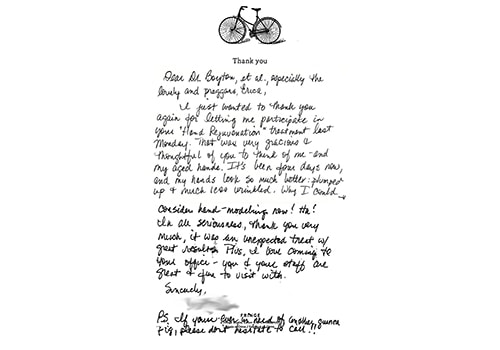 Thank you
Dear Dr. Boynton, et al., especially the
lovely and preggars, Erica,
I just wanted to thank you
again for letting me participate in
your "Hand Rejuvenation" treatment last
Monday. That was very gracious &
thoughtful of you to think of me - and
my aged hands. It's been four days now,
and my hands look so much better: plumped
up & much less wrinkled. Why I could →
consider hand-modeling now! Ha!
In all seriousness, thank you very
much, it was an unexpected treat w/
great results. Plus, I love coming to
your office - you & your staff are
great & fun to visit with.
Sincerely,
P.S. If you're ever in need of another guinea
pig, please don't hesitate to call!!